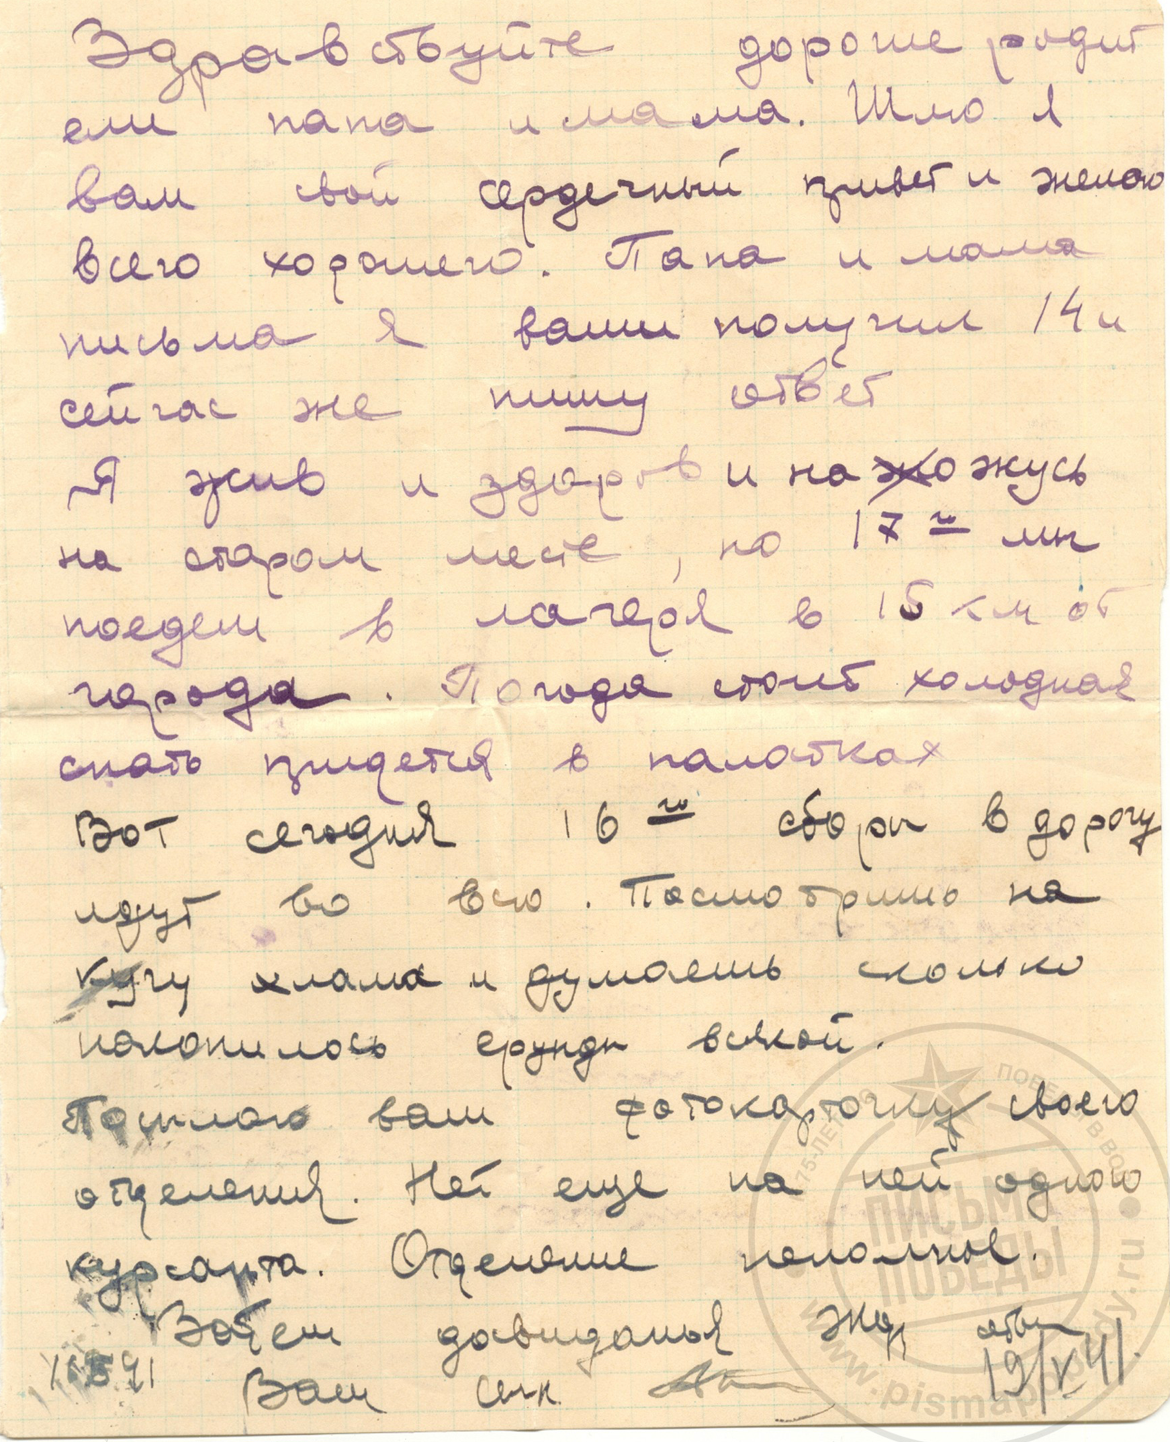 Здравствуйте дорогие родит
ели папа и мама. Шлю я
вам свой сердечный привет и желаю
всего хорошего. Папа и мама
письма я ваши получил 14 и
сейчас же пишу ответ
Я жив и здоров и нахожусь
на старом месте, но 17го мы
поедем в лагеря в 15 км от
города. Погода стоит холодная
спать придется в палатках
Вот сегодня 16го сборы в дорогу
идут во всю. Посмотришь на
кучу хлама и думаешь сколько
накопилось ерунды всякой.
Посылаю вам фотокарточку своего
отделения. Нет еще на ней одного
курсанта. Отделение неполное.
Затем довиданья Жду
Ваш сын 19/V 41.
ПИСЬМА
ПОБЕДЫ
www.pismapobedy.ru